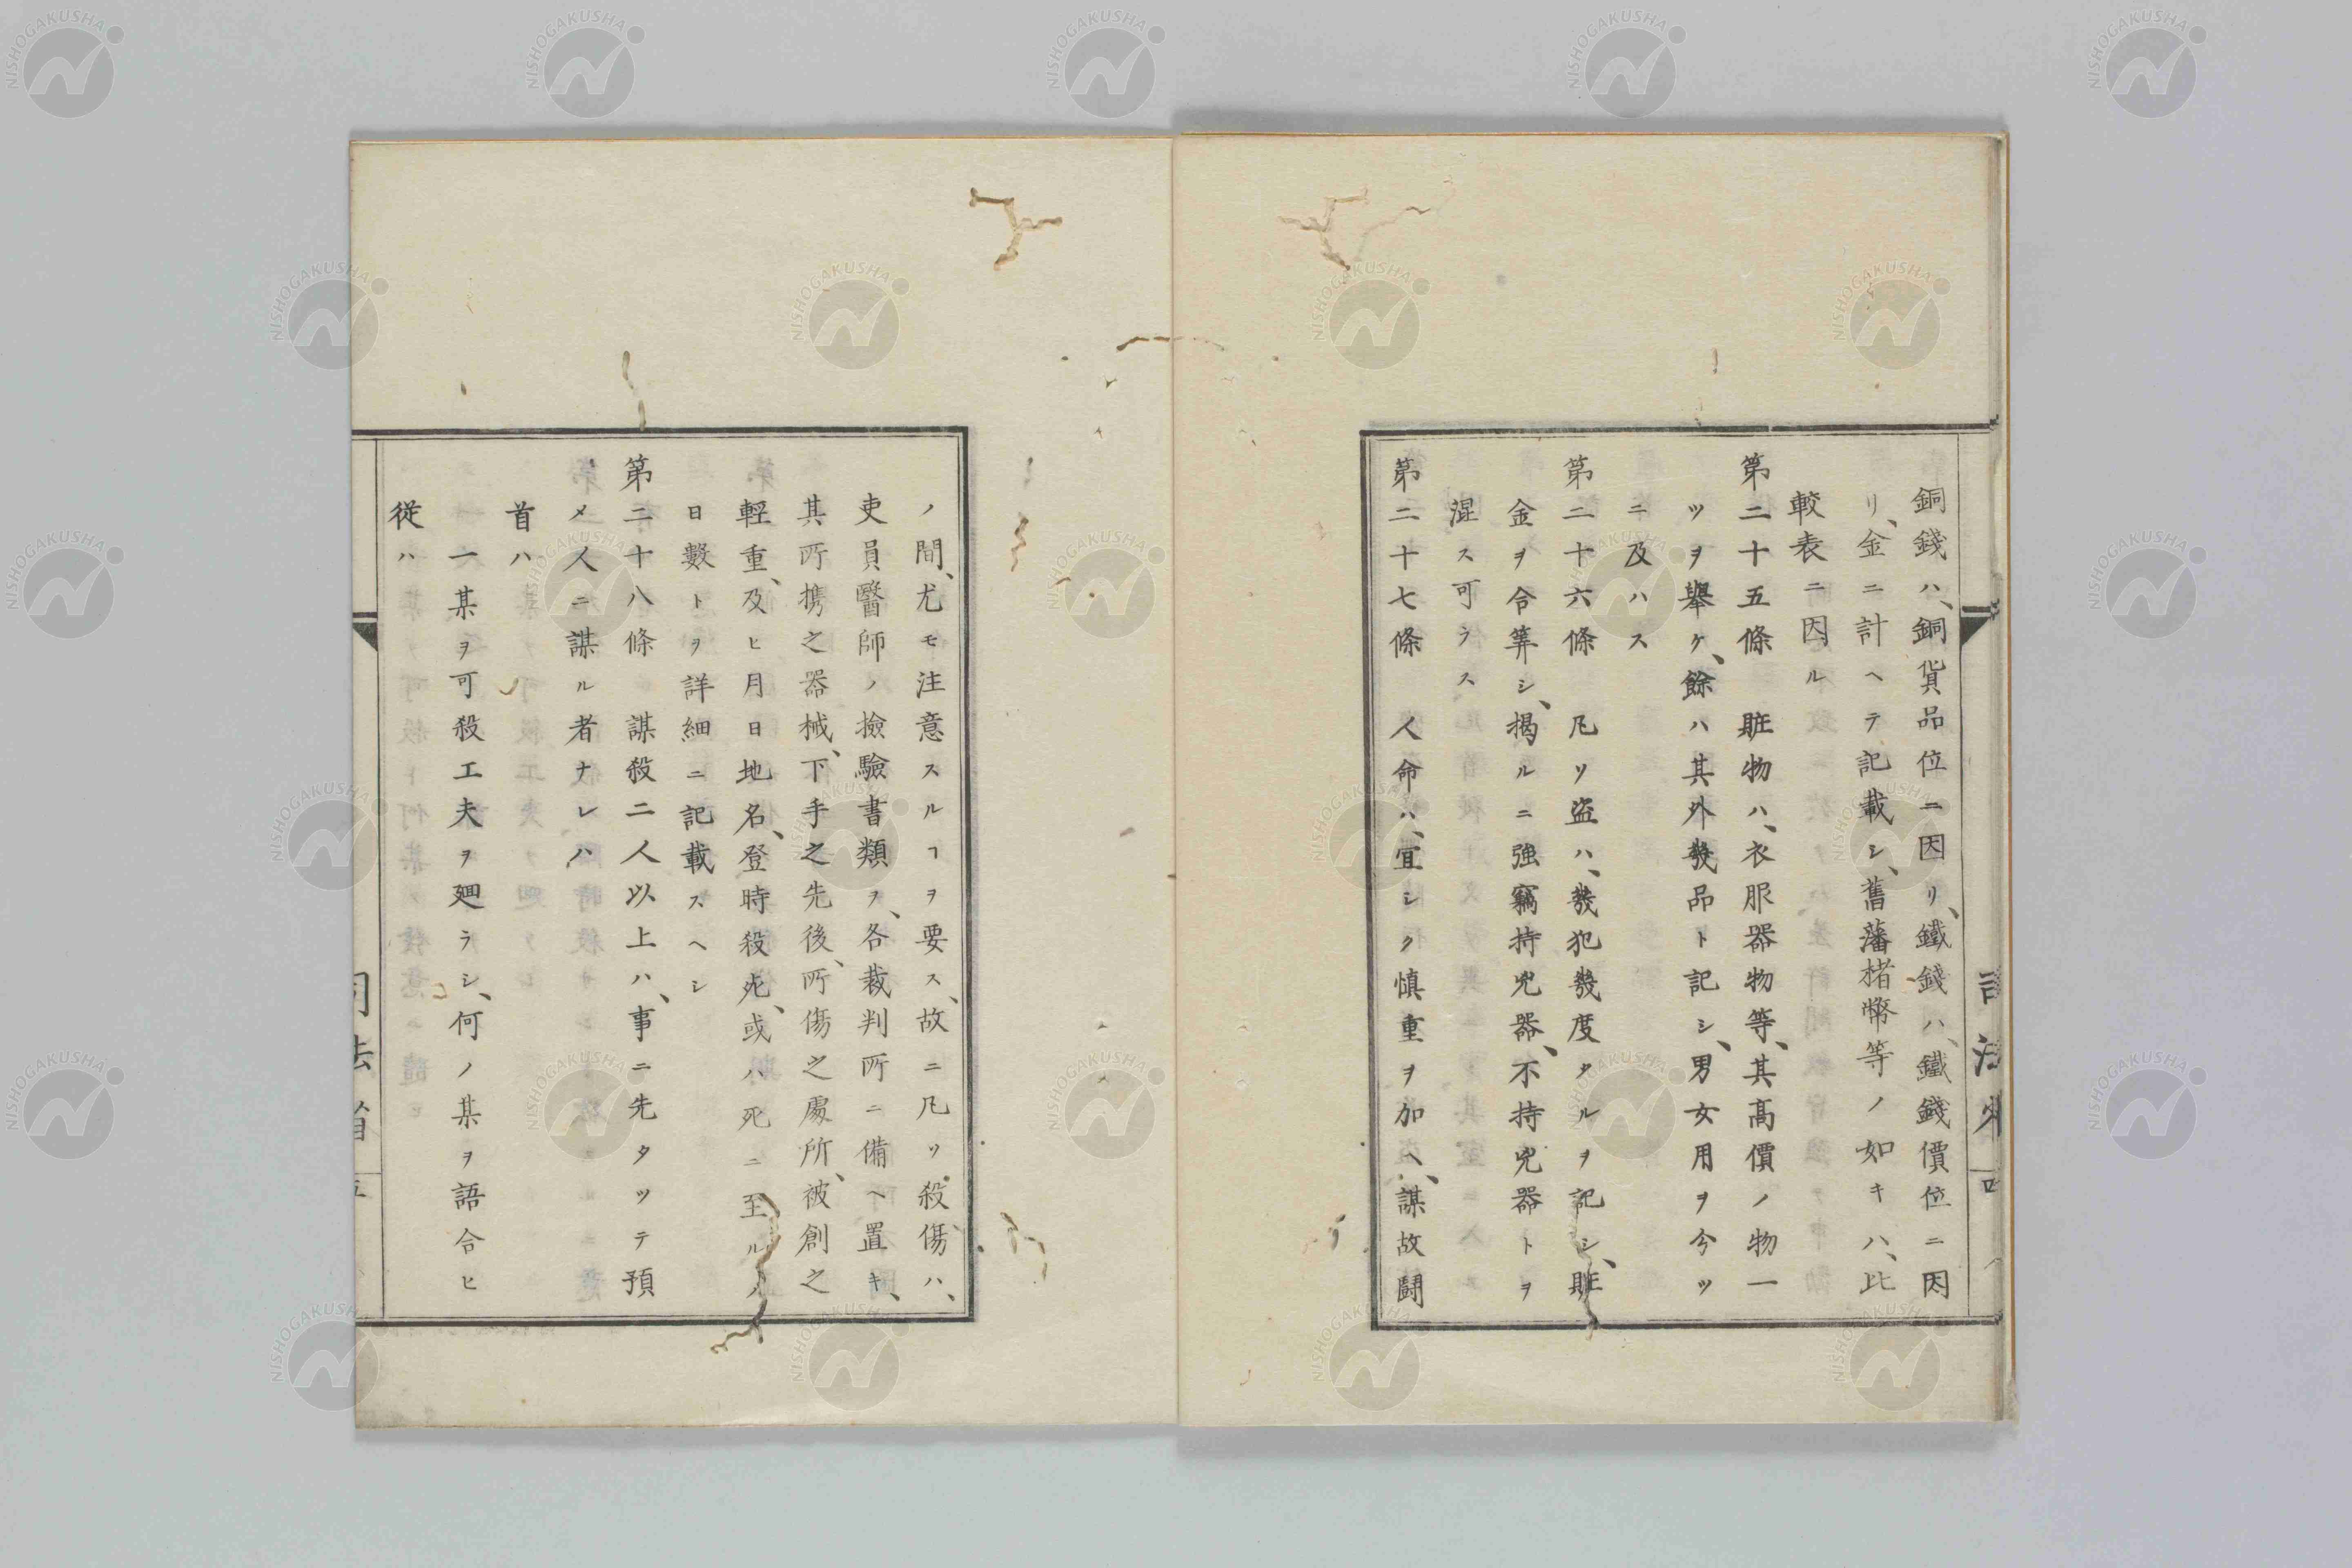 銅錢ハ、銅貨品位ニ因リ、鐵錢ハ、鐵錢價位ニ因
リ、金ニ計ヘテ記載シ、舊藩楮幣等ノ如キハ、比
較表ニ因ル
第二十五條　賍物ハ、衣服器物等、其高價ノ物一
ツヲ擧ケ、餘ハ其外幾品ト記シ、男女用ヲ分ツ
ニ及ハス
第二十六條　凡ソ盗ハ、幾犯幾度タルヲ記シ、賍
金ヲ合筭シ、揭ルニ強竊持兇器、不持兇器トヲ
混ス可ラス
第二十七條　人命ハ、宜シク慎重ヲ加ヘ、謀故鬪
ノ間、尤モ注意スルヿヲ要ス、故ニ凡ソ殺傷ハ、
吏員醫師ノ撿驗書類ヲ、各裁判所ニ備ヘ置キ、
其所携之器械、下手之先後、所傷之處所、被創之
輕重、及ヒ月日地名、登時殺死、或ハ死ニ至ルノ
日數トヲ詳細ニ記載スヘシ
第二十八條　謀殺二人以上ハ、事ニ先タツテ預
メ人ニ謀ル者ナレハ
首ハ
一某ヲ可殺工夫ヲ廻ラシ、何ノ某ヲ語合ヒ
從ハ